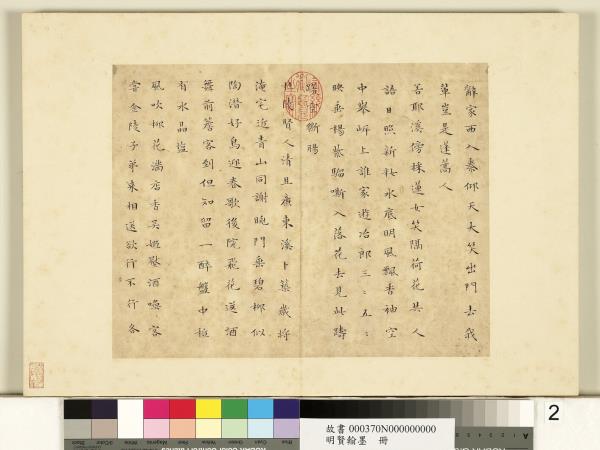 辭家西入秦仰天大笑出門去我
輩豈是蓬蒿人
若耶溪傍採蓮女笑隔荷花共人
語日照新粧水底明風飄香袖空
中舉岸上誰家遊冶郎三三五五
映垂楊紫騮嘶入落花去見此躊
躇空斷腸
陵賢人清且廉東溪卜築歲將
淹宅近青山同謝朓門垂碧柳似
陶潛好鳥迎春歌後院飛花送酒
舞前簷客到但知留一醉盤中秪
有水晶鹽
風吹柳花滿店香吳姬壓酒喚客
嘗金陵子弟來相送欲行不行各
故書 000370N000000000
明賢翰墨 冊
2